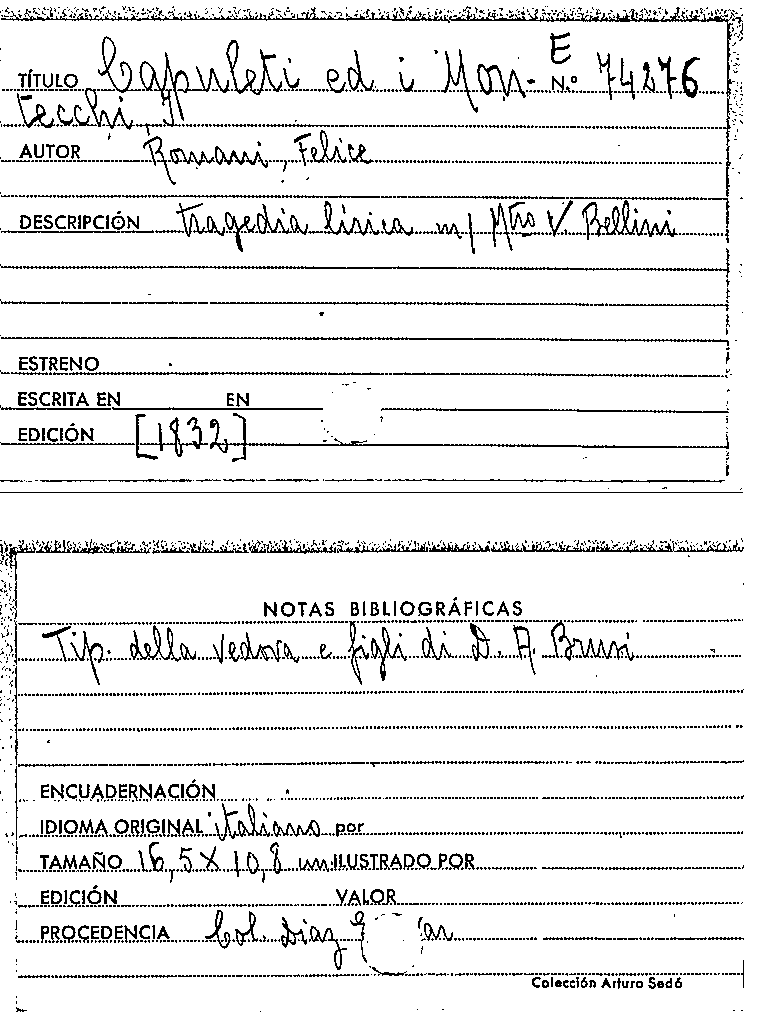 E
TÍTULO Capuleti ed i Mon- N.º 74276
tecchi, I
AUTOR Romani, Felice
DESCRIPCIÓN tragedia lírica m/ Mtro V. Bellini
ESTRENO
ESCRITA EN EN
EDICIÓN [1832]
NOTAS BIBLIOGRÁFICAS
Tip. della vedova e figli di D. A. Brusi
ENCUADERNACIÓN
IDIOMA ORIGINAL italiano por
TAMAÑO 16,5 X 10,8 cm. ILUSTRADO POR
EDICIÓN VALOR
PROCEDENCIA Col. Diaz
Colección Arturo Sedó